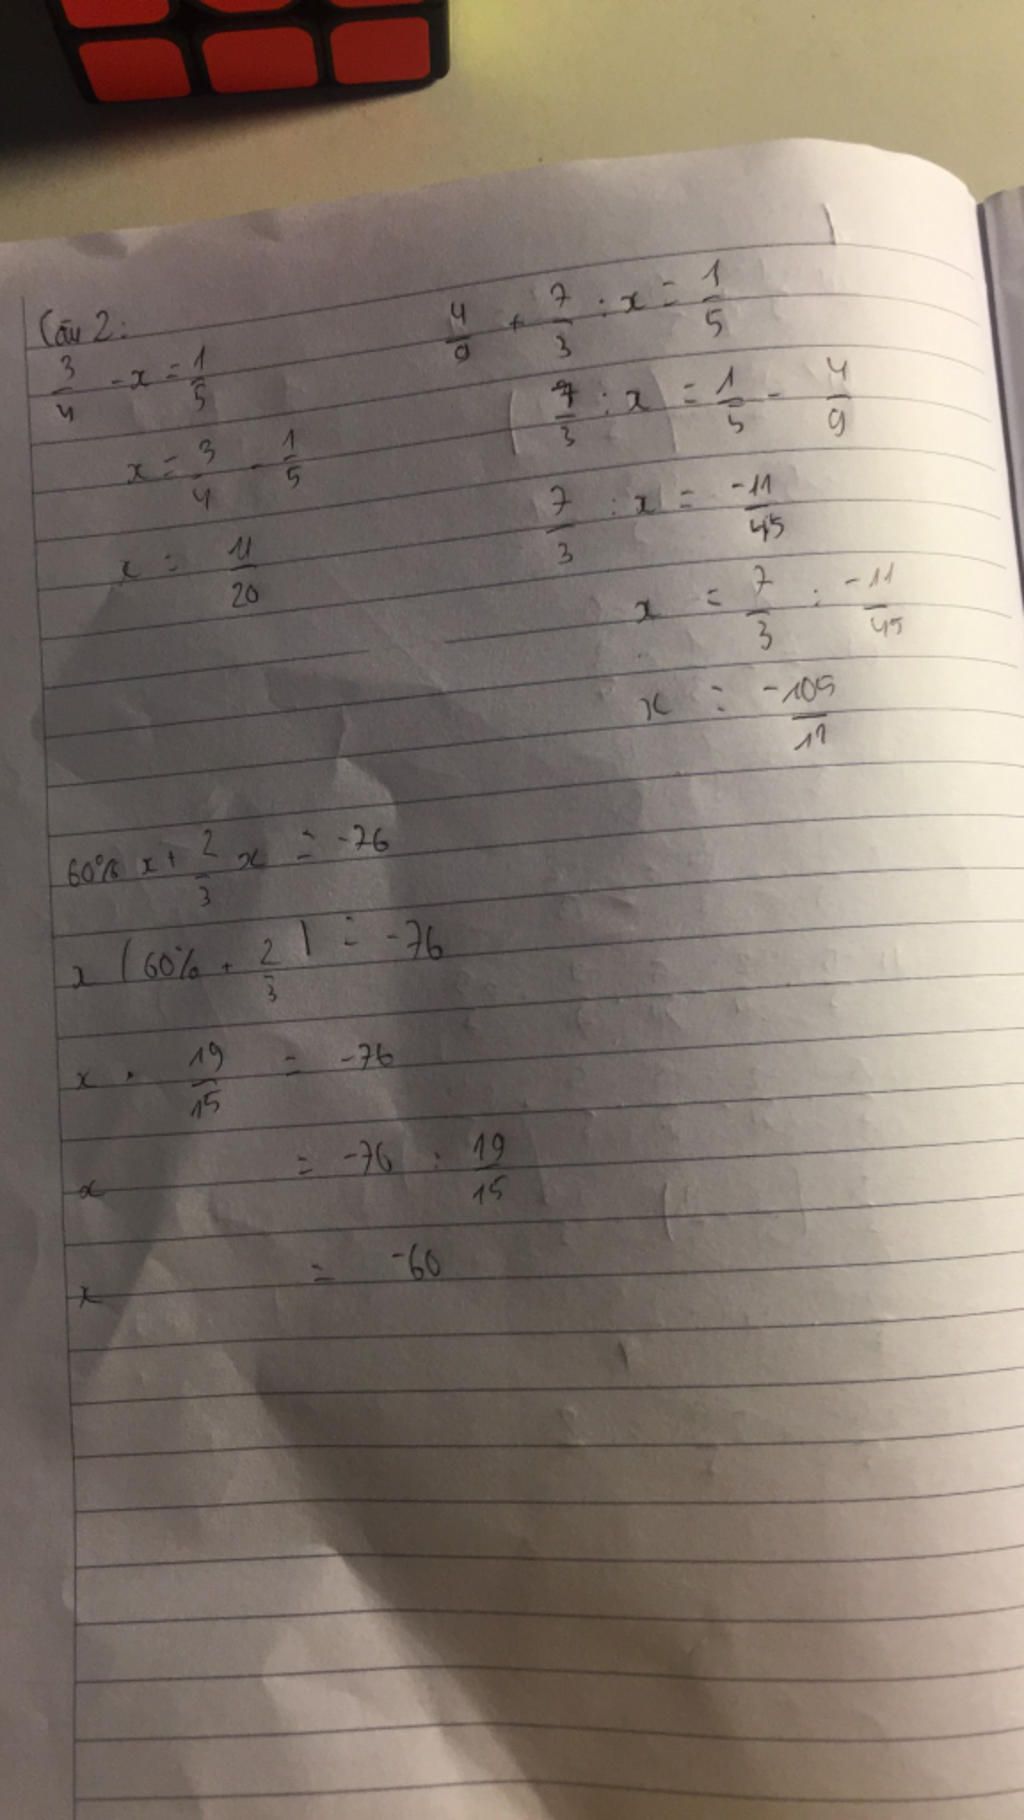 Câu 2:
3/4 - x = 1/5
x = 3/4 - 1/5
x = 11/20
4/9 + 7/3 : x = 1/5
7/3 : x = 1/5 - 4/9
7/3 : x = -11/45
x = 7/3 : -11/45
x = -105/11
60% x + 2/3 x = -76
x (60% + 2/3) = -76
x . 19/15 = -76
x = -76 : 19/15
x = -60